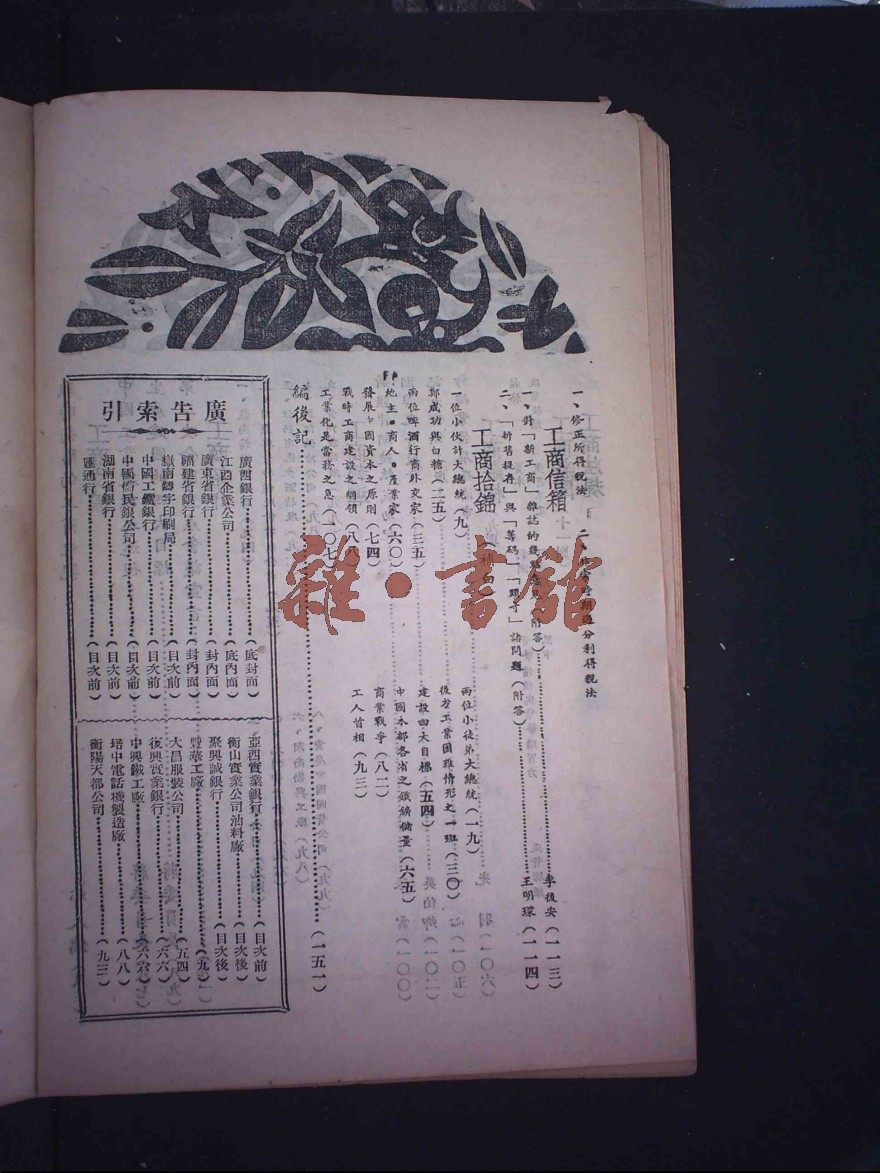 一、修正所得稅法
二、非常時期過分利得稅法
工商信箱
一、對「新工商」雜誌的幾點意見（附答）李俊安（一一三）
二、「折舊提存」與「籌碼」「頭寸」諸問題（附答）王明琛（一一四）
工商拾錦（補白）
一位小伙計大總統（九）
兩位小徒弟大總統（一九）
鄭成功與白糖（二五）
後方工業困難情形之一班（三〇）
兩位啤酒行商外交家（三五）
建設四大目標（五四）
地主•商人•產業家（六〇）
中國本部各省之鐵鑛儲量（六五）
發展中國資本之原則（七四）
商業戰爭（八二）
戰時工商建設之綱領（八八）
工人首相（九三）
工業化是當務之急（一〇七）
編後記（一五一）
廣告索引
廣西銀行（底封面）
江西企業公司（底內面）
廣東省銀行（封內面）
福建省銀行（封內面）
嶽南鑄字印刷局（目次前）
中國工鑛銀行（目次前）
中國僑民銀公司（目次前）
湖南省銀行（目次前）
匯通行（目次前）
亞西實業銀行（目次前）
衡山實業公司油料廠（目次後）
聚興誠銀行（目次後）
工廠
大昌服裝公司（五四）
復興實業銀行（六六）
中興鐵工廠
培中電話機製造廠（八八）
衡陽天都公司（九三）
雜•書館